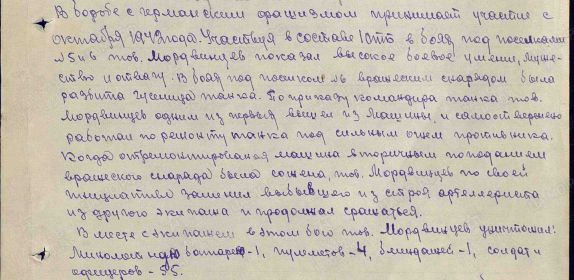 В борьбе с германским фашизмом принимает участие с
октября 1942 года. Участвуя в составе 1 отб в боях под поселками
№5 и 6 тов. Мордвинцев показал высокое боевое умение, муже-
ство и отвагу. В боях под поселком №5 вражеским снарядом была
разбита гусеница танка. По приказу командира танка тов.
Мордвинцев одним из первых вышел из машины, и самоотверженно
работал по ремонту танка под сильным огнем противника.
Когда отремонтированая машина вторичным попаданием
вражеского снаряда была сожжена, тов. Мордвинцев по своей
инициативе заменил выбывшего из строя артеллериста
из другого экипажа и продолжал сражаться.
Вместе с экипажем в этом бою тов. Мордвинцев уничтожил:
Минометную батарею-1, пулеметов-4, блиндажей-1, солдат и
офицеров-55.